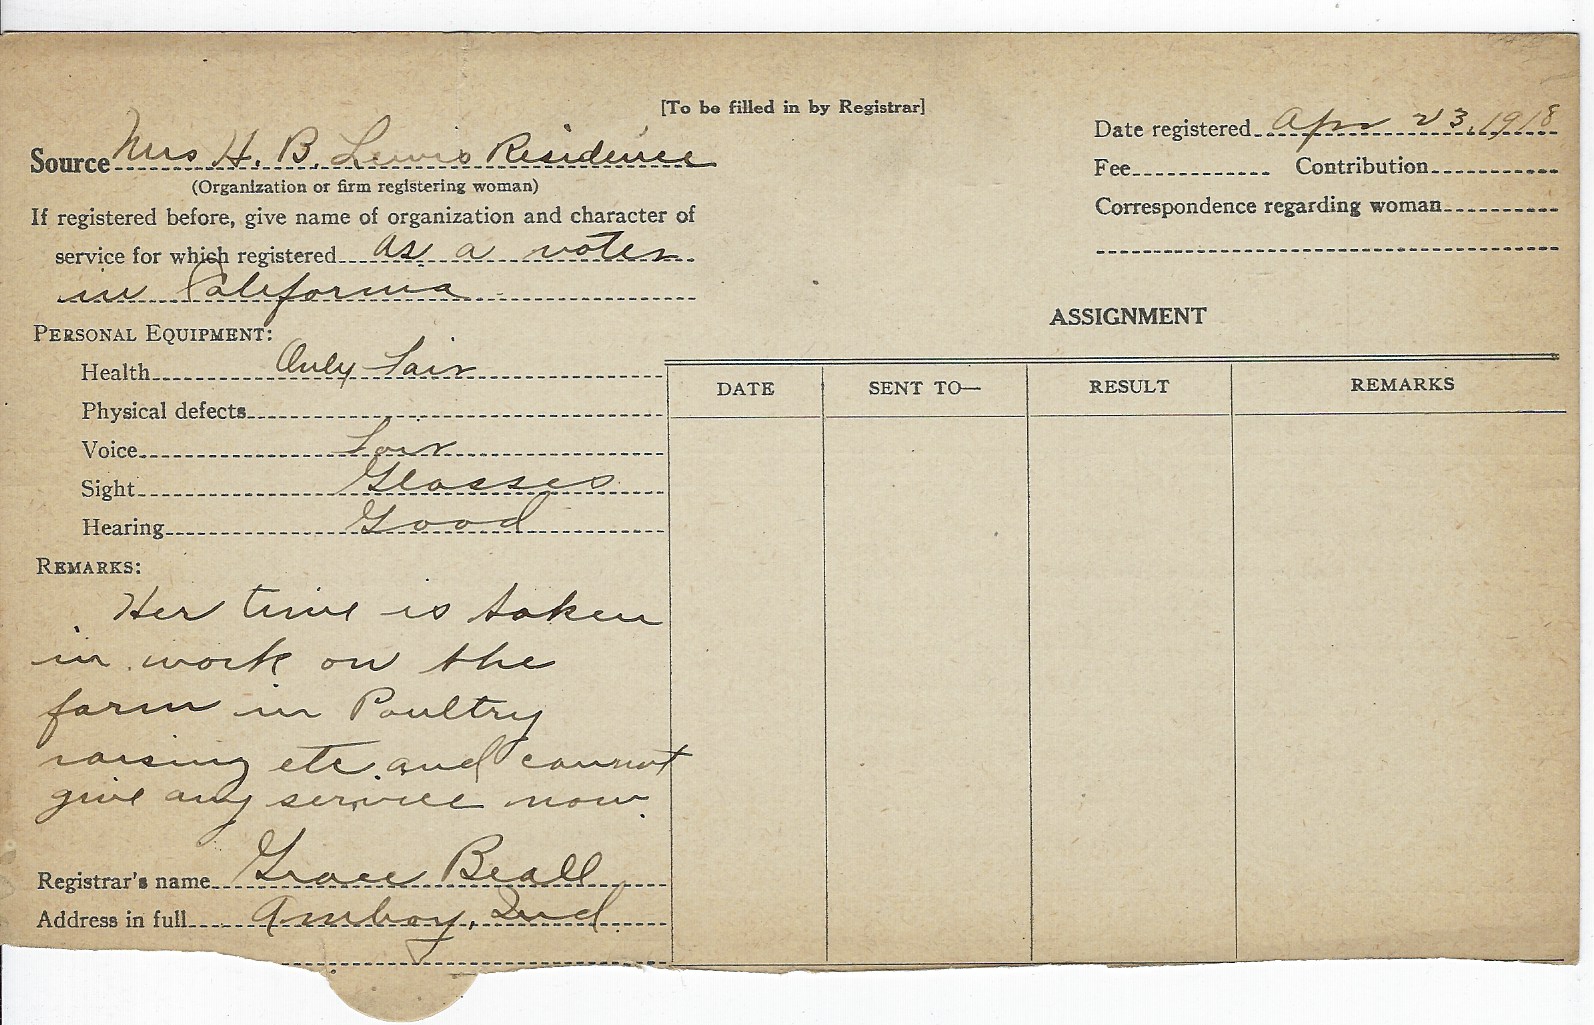 [To be filled in by Registrar]
Source Mrs H. B. Lewis Residence
(Organization or firm registering woman)
If registered before, give name of organization and character of
service for which registered as a voter
in California
PERSONAL EQUIPMENT:
Health Only Fair
Physical defects
Voice Fair
Sight Glasses
Hearing Good
REMARKS:
Her time is taken
in work on the
farm in Poultry
raising etc. and cannot
give any service now.
Registrar's name Grace Beall
Address in full Amboy, Ind
Date registered Apr 23, 1918
Fee Contribution
Correspondence regarding woman
ASSIGNMENT
DATE SENT TO— RESULT REMARKS